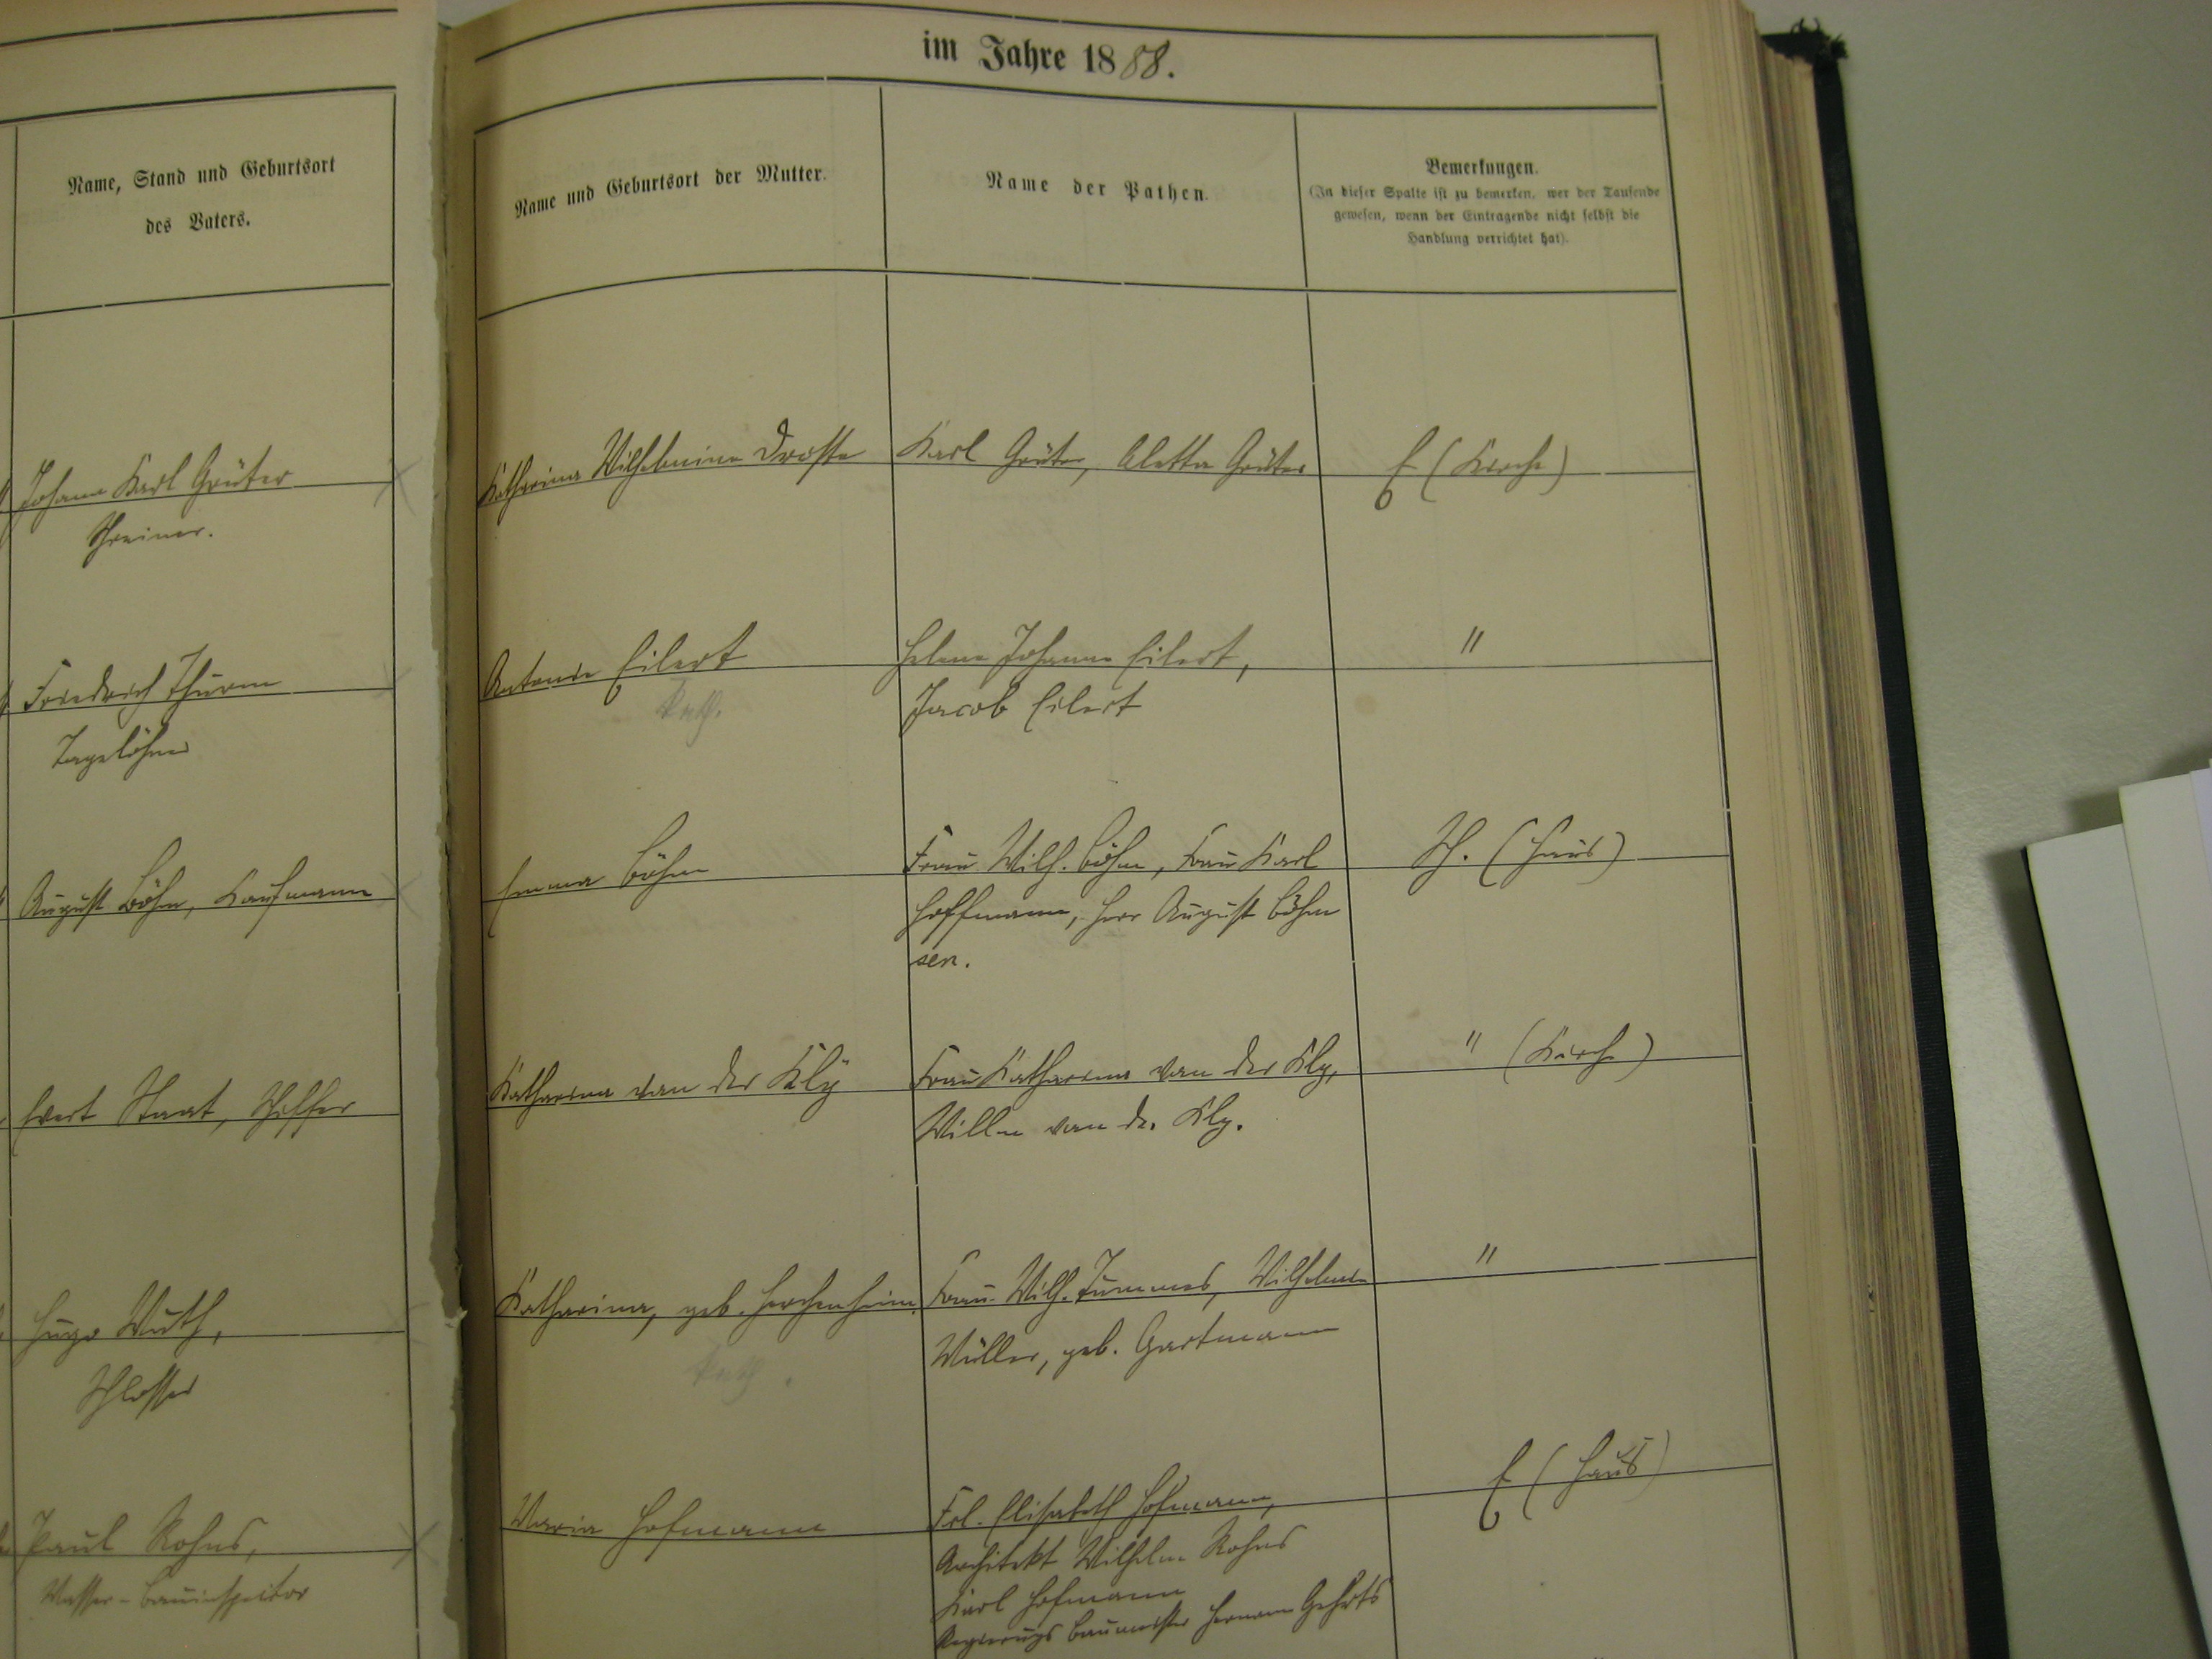 im Jahre 1888.
Name, Stand und Geburtsort
des Vaters.
Name und Geburtsort der Mutter.
Name der Pathen.
Bemerkungen.
(In dieser Spalte ist zu bemerken, wer der Taufende
gewesen, wenn der Eintragende nicht selbst die
Handlung verrichtet hat).
Johann Karl Grüter
Schreiner.
Katharina Wilhelmine Droste
Karl Grüter, Aletta Grüter
E (Kirche)
Friedrich Thurm
Tagelöhner
Antonie Eilert
kath.
Helene Johanne Eilert,
Jacob Eilert
"
August Böhm, Kaufmann
Emma Böhm
Frau Wilh. Böhm, Frau Karl
Hoffmann, Herr August Böhm
sen.
Sch. (Haus)
Evert Staat, Schiffer
Katharina van der Klÿ
Frau Katharina van der Kly,
Willem van der Kly.
" (Kirche)
Hugo Wuth,
Schlosser
Katharina, geb. Herchenheim
kath.
Frau Wilh. Tummes, Wilhelmine
Müller, geb. Gartmann
"
Paul Rohns,
Wasser-Bauinspector
Maria Hofmann
Frl. Elisabeth Hofmann,
Architekt Wilhelm Rohns
Karl Hofmann
Regierungs Baumeister Hermann Gehrts
E (Haus)